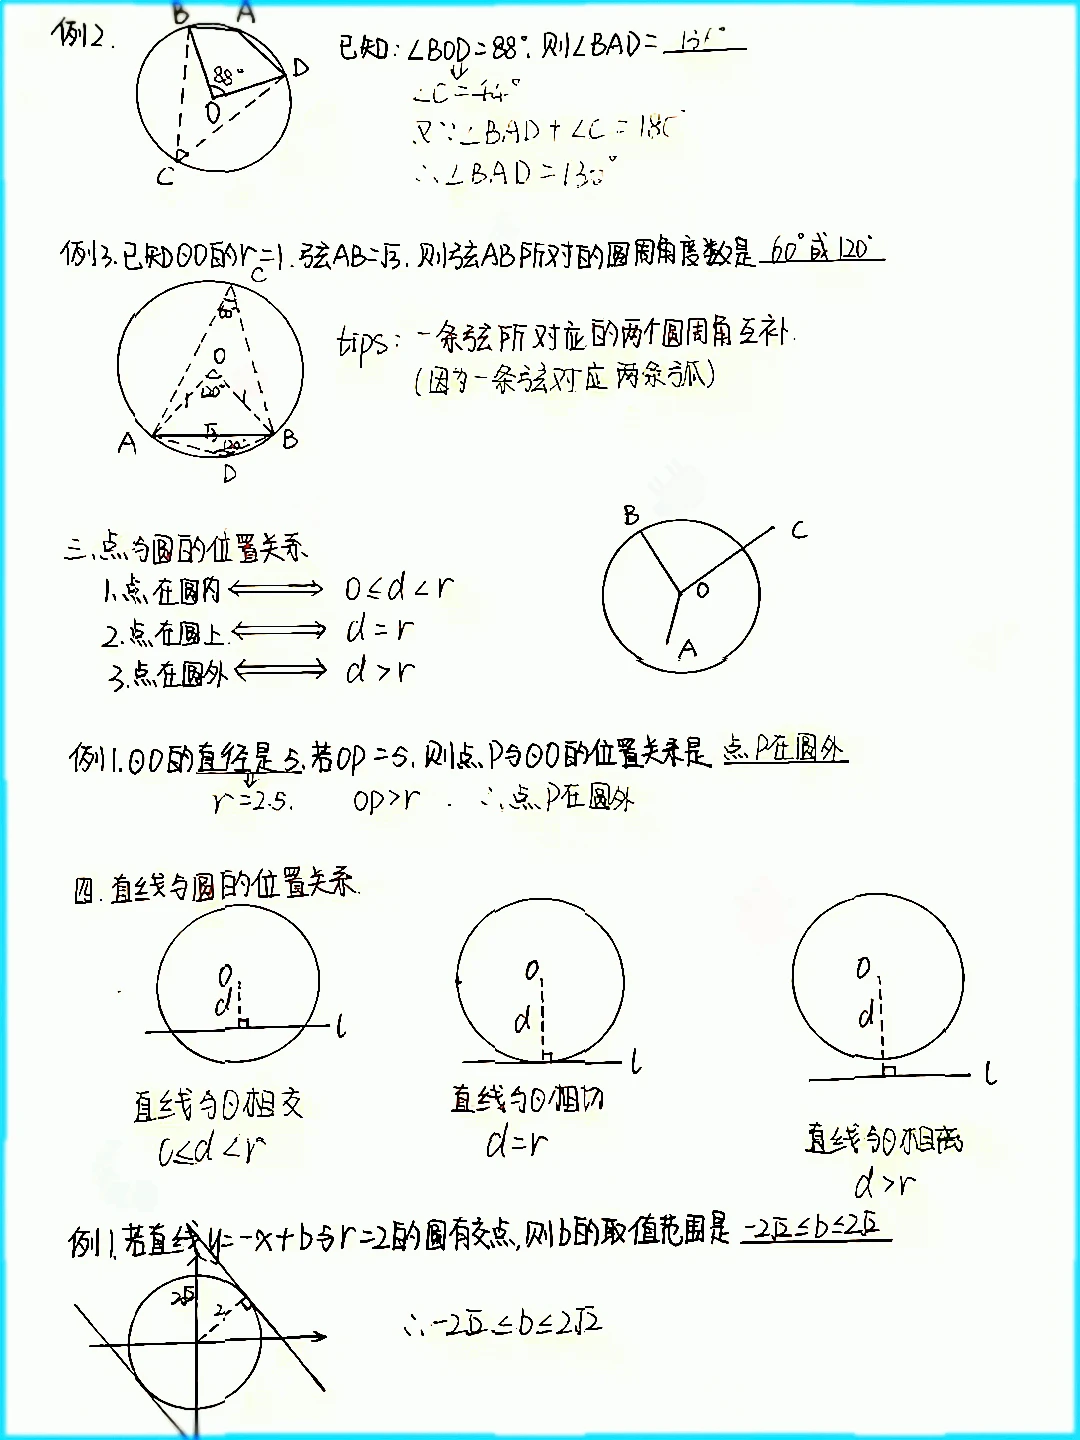 例2.
B A
88°
D
O
C
已知:∠BOD=88°.则∠BAD=
∠C=44°
又∵∠BAD+∠C=180°
∴∠BAD=
例3.已知⊙O的r=1.弦AB=√3.则弦AB所对的圆周角度数是 60°或120°
C
60°
O
120°
r 1
√3
A B
120°
D
tips:一条弦所对应的两个圆周角互补.
(因为一条弦对应两条弧)
三、点与圆的位置关系
1.点在圆内⟺ 0≤d<r
2.点在圆上.⟺ d=r
3.点在圆外⟺ d>r
B
C
O
A
例1.⊙O的直径是5.若OP=5.则点P与⊙O的位置关系是 点P在圆外
r=2.5. OP>r . ∴点P在圆外
四.直线与圆的位置关系.
O
d
l
直线与⊙相交
0≤d<r
O
d
l
直线与⊙相切
d=r
O
d
l
直线与⊙相离
d>r
例1.若直线y=-x+b与r=2的圆有交点,则b的取值范围是 -2√2≤b≤2√2
2√2
2
∴-2√2≤b≤2√2